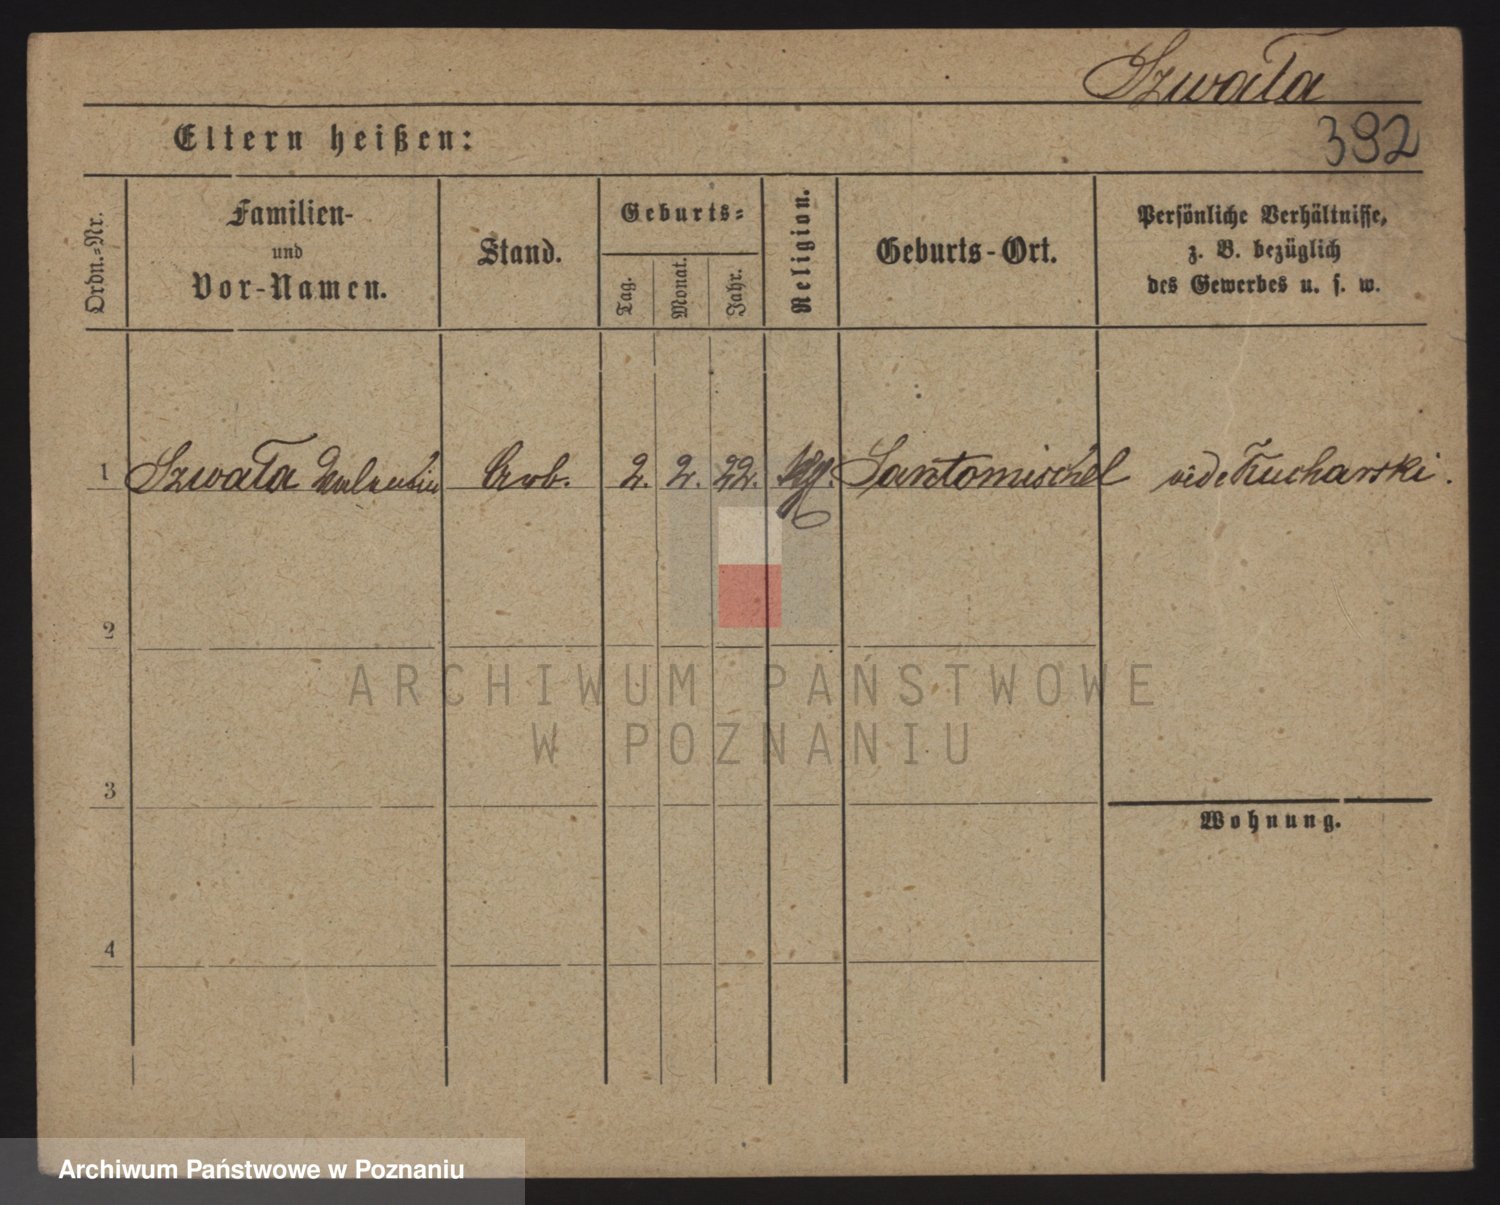 Szwata
392
Eltern heißen:
Ordn.-Nr.
Familien-
und
Vor-Namen.
Stand.
Geburts-
Tag.
Monat.
Jahr.
Religion.
Geburts-Ort.
Persönliche Verhältnisse,
z. B. bezüglich
des Gewerbes u. s. w.
1 Szwata Valentin Arb. 2. 2. 22. Santomischel vide Kucharski.
2
ARCHIWUM PAŃSTWOWE
W POZNANIU
3
Wohnung.
4
Archiwum Państwowe w Poznaniu